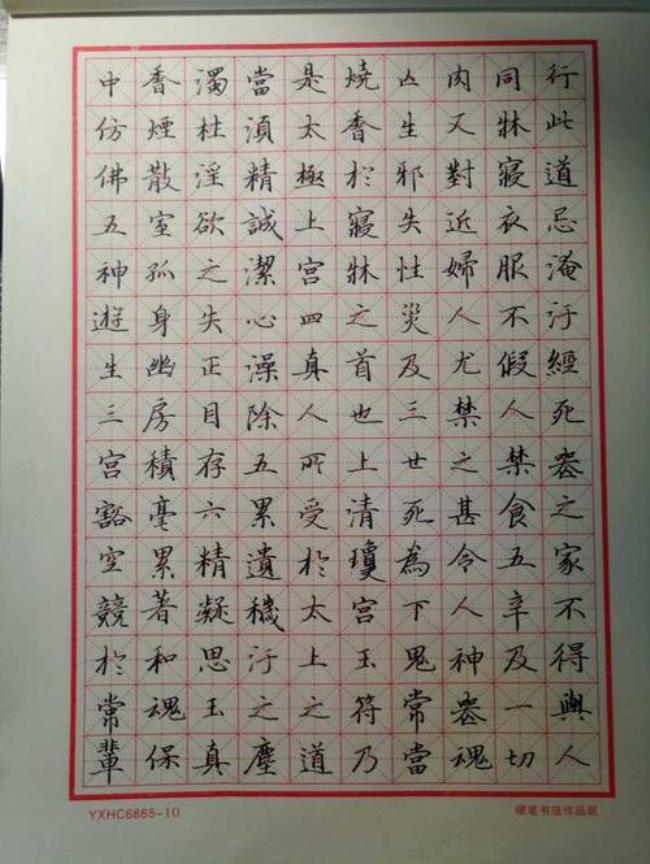 行此道忌淹汙經死喪之家不得與人
同牀寢衣服不假人禁食五辛及一切
肉又對近婦人尤禁之甚令人神喪魂
亡生邪失性災及三世死為下鬼常當
燒香於寢牀之首也上清瓊宮玉符乃
是太極上宮四真人所受於太上之道
當須精誠潔心澡除五累遺穢汙之塵
濁杜淫欲之失正目存六精凝思玉真
香煙散室孤身幽房積毫累著和魂保
中仿佛五神遊生三宮豁空競於常輩
YXHC6865-10
硬笔书法作品纸